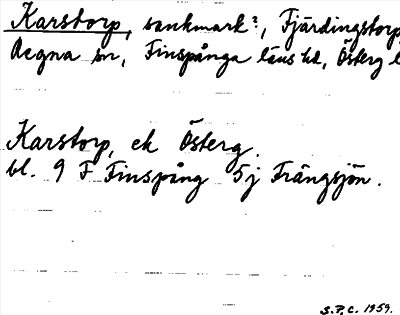 Karstorp, sankmark?, Fjärdingstorp,
Regna sn, Finspånga läns hd, Österg l
Karstorp, ek Österg.
bl. 9 F Finspång 5j Frängsjön.
S.P.C. 1959.